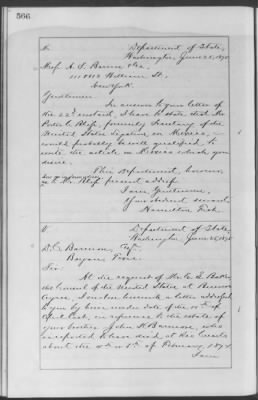 566
Department of State,
Washington, June 25, 1875
Messrs A. S. Barnes &Co.
111 & 113 William St.,
New York.
Gentlemen:
In answer to your letter of
the 22d instant, I have to state that Mr
Porter C. Bliss, formerly Secretary of the
United States Legation, in Mexico,
would probably be well qualified to
write the article on Mexico which you
desire.
This Department, however,
has no
as to Mr Bliss' present address.
I am, Gentlemen,
Your obedient servant,
Hamilton Fish.
Department of State,
Washington, June 25, 1875
Esq.
Sir:
At the request of Mr. E. L. Baker
the Consul of the United States at Buenos
Ayres, I enclose herewith a letter addressed
to you by him under date of the
April last, in reference to the estate of
your brother John
is reported to have died at
about the 4th or 5th of February, 1874.
I am